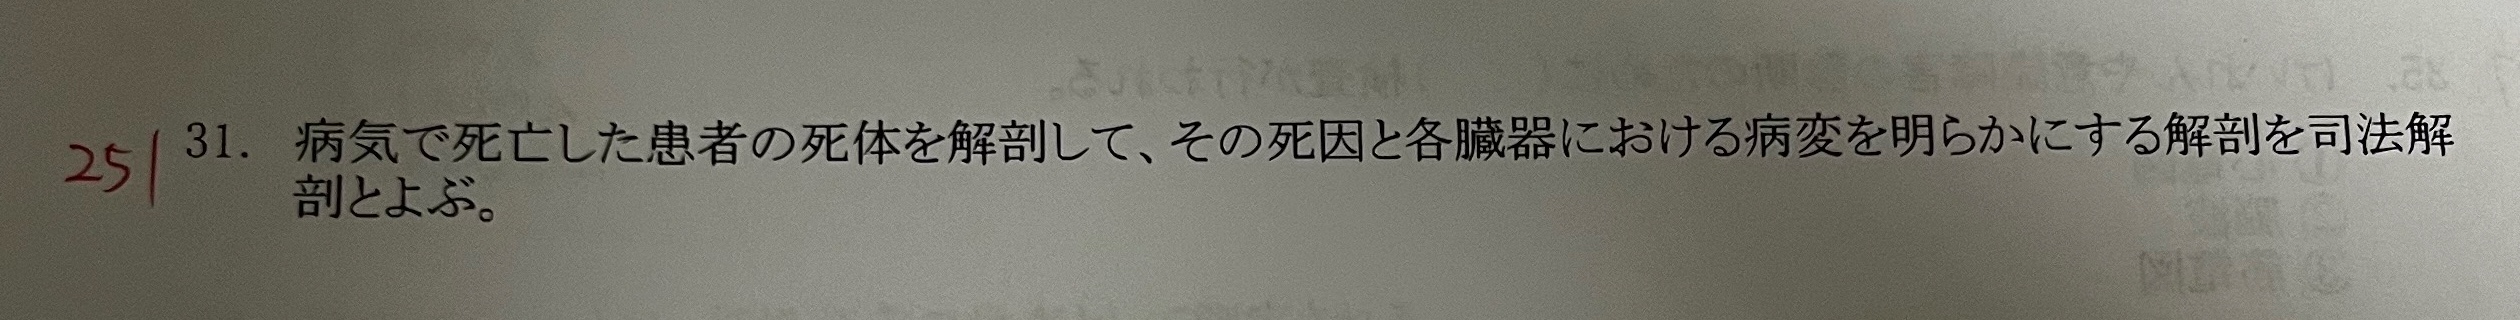 251 31. 病気で死亡した患者の死体を解剖して、その死因と各臓器における病変を明らかにする解剖を司法解
剖とよぶ。